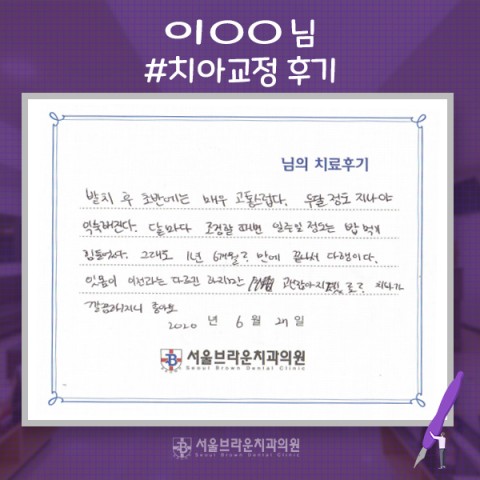 이○○ 님
#치아교정 후기
님의 치료후기
발치 후 초반에는 매우 고통스럽다. 두달 정도 지나야
익숙해진다. 달마다 조정할 때면 일주일 정도는 밥 먹기
힘들었다. 그래도 1년 6개월 만에 끝나서 다행이다.
잇몸이 이전과는 다르긴 하지만 괜찮아지겠고 치아가
깔끔해지니 좋아요
2020 년 6 월 27 일
서울브라운치과의원
Seoul Brown Dental Clinic
서울브라운치과의원
Seoul Brown Dental Clinic